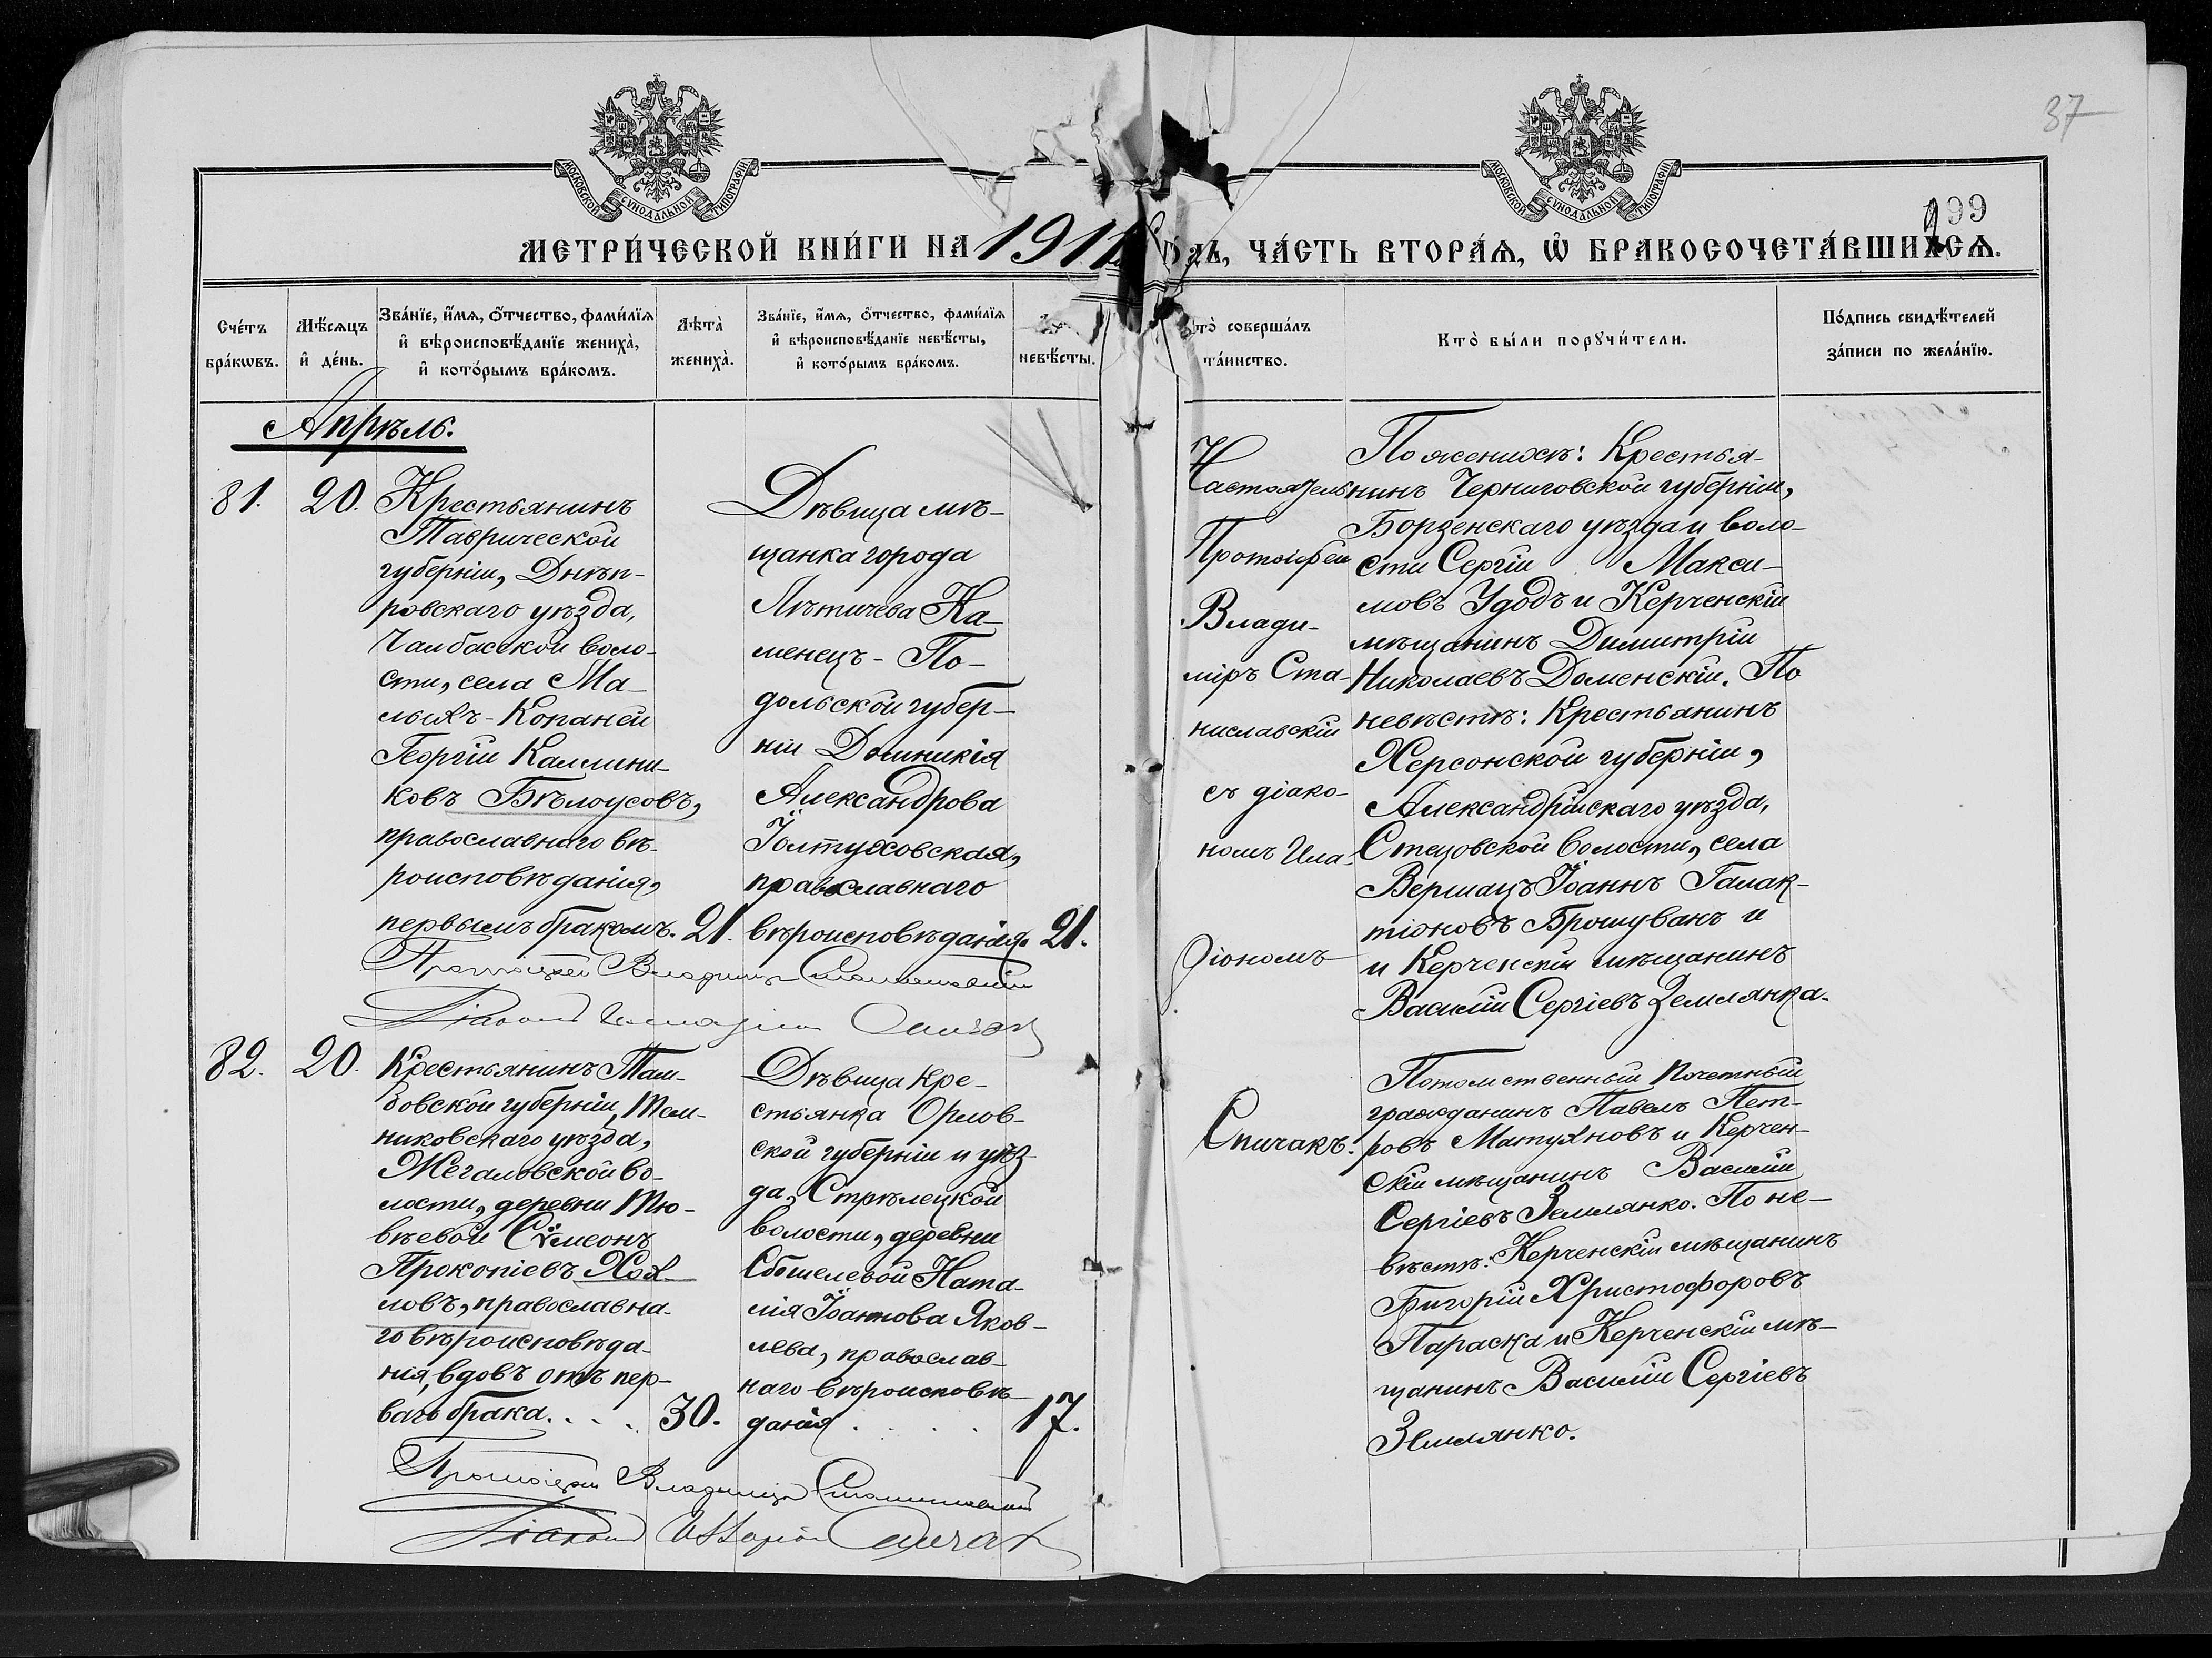 37
МОСКОВСКОЙ СѴНОДАЛЬНОЙ ТИПОГРАФІИ
МОСКОВСКОЙ СѴНОДАЛЬНОЙ ТИПОГРАФІИ
299
МЕТРИ́ЧЕСКОЙ КНИ́ГИ НА 1911 ГОДЪ, ЧА́СТЬ ВТОРА́Ѧ, Ѡ БРАКОСОЧЕТА́ВШИХСѦ.
Сче́тъ бра́кѡвъ.
Мѣ́сѧцъ и҆ де́нь.
Зва́нїе, и҆́мѧ, ѻ҆́тчество, фами́лїѧ и҆ вѣроисповѣ́данїе жениха̀, и҆ кото́рымъ бра́комъ.
Лѣта̀ жениха̀.
Зва́нїе, и҆́мѧ, ѻ҆́тчество, фами́лїѧ и҆ вѣроисповѣ́данїе невѣ́сты, и҆ кото́рымъ бра́комъ.
невѣ́сты.
Кто̀ соверша́лъ та́инство.
Кто̀ бы́ли порꙋчи́тели.
По́дпись свидѣ́телей за́писи по жела́нїю.
Апрѣль.
81.
20.
Крестьянинъ
Таврической
губерніи, Днѣп-
ровскаго уѣзда,
Чалбасской воло-
сти, села Ма-
лыхъ-Копаней
Георгій Каллини-
ковъ Бѣлоусовъ,
православнаго вѣ-
роисповѣданія,
первымъ бракомъ.
21.
Дѣвица мѣ-
щанка города
Лѣтичева Ка-
менецъ-По-
дольской губер-
ніи Домникія
Александрова
Іолтуховская,
православнаго
вѣроисповѣданія.
21.
Протоіерей Владиміръ Станиславскій
Діаконъ Иларіонъ Спичакъ
Настоятель
Протоіерей
Влади-
міръ Ста-
ниславскій
съ діако-
номъ Ила-
ріономъ
Спичакъ.
По женихѣ: Крестья-
нинъ Черниговской губерніи,
Борзенскаго уѣзда и воло-
сти Сергій Макси-
мовъ Удодъ и Керченскій
мѣщанинъ Димитрій
Николаевъ Доменскій. По
невѣстѣ: Крестьянинъ
Херсонской губерніи,
Александрійскаго уѣзда,
Стецовской волости, села
Вершацъ Іоаннъ Галак-
тіоновъ Брошуванъ и
и Керченскій мѣщанинъ
Василій Сергіевъ Землянка.
82.
20.
Крестьянинъ Там-
бовской губерніи, Тем-
никовскаго уѣзда,
Жегаловской во-
лости, деревни Тю-
вѣевой Сѵмеонъ
Прокопіевъ Хох-
ловъ, православна-
го вѣроисповѣда-
нія, вдовъ отъ пер-
ваго брака. . . .
30.
Дѣвица Кре-
стьянка Орлов-
ской губерніи и уѣз-
да, Стрѣлецкой
волости, деревни
Ната-
лія Іоаннова Яков-
лева, православ-
наго вѣроисповѣ-
данія. . . . .
17.
Протоіерей Владиміръ Станиславскій
Діаконъ Иларіонъ Спичакъ
Потомственный Почетный
гражданинъ Павелъ Пет-
ровъ Матухновъ и Керчен-
скій мѣщанинъ Василій
Сергіевъ Землянко. По не-
вѣстѣ: Керченскій мѣщанинъ
Григорій Христофоровъ
Параска и Керченскій мѣ-
щанинъ Василій Сергіевъ
Землянко.